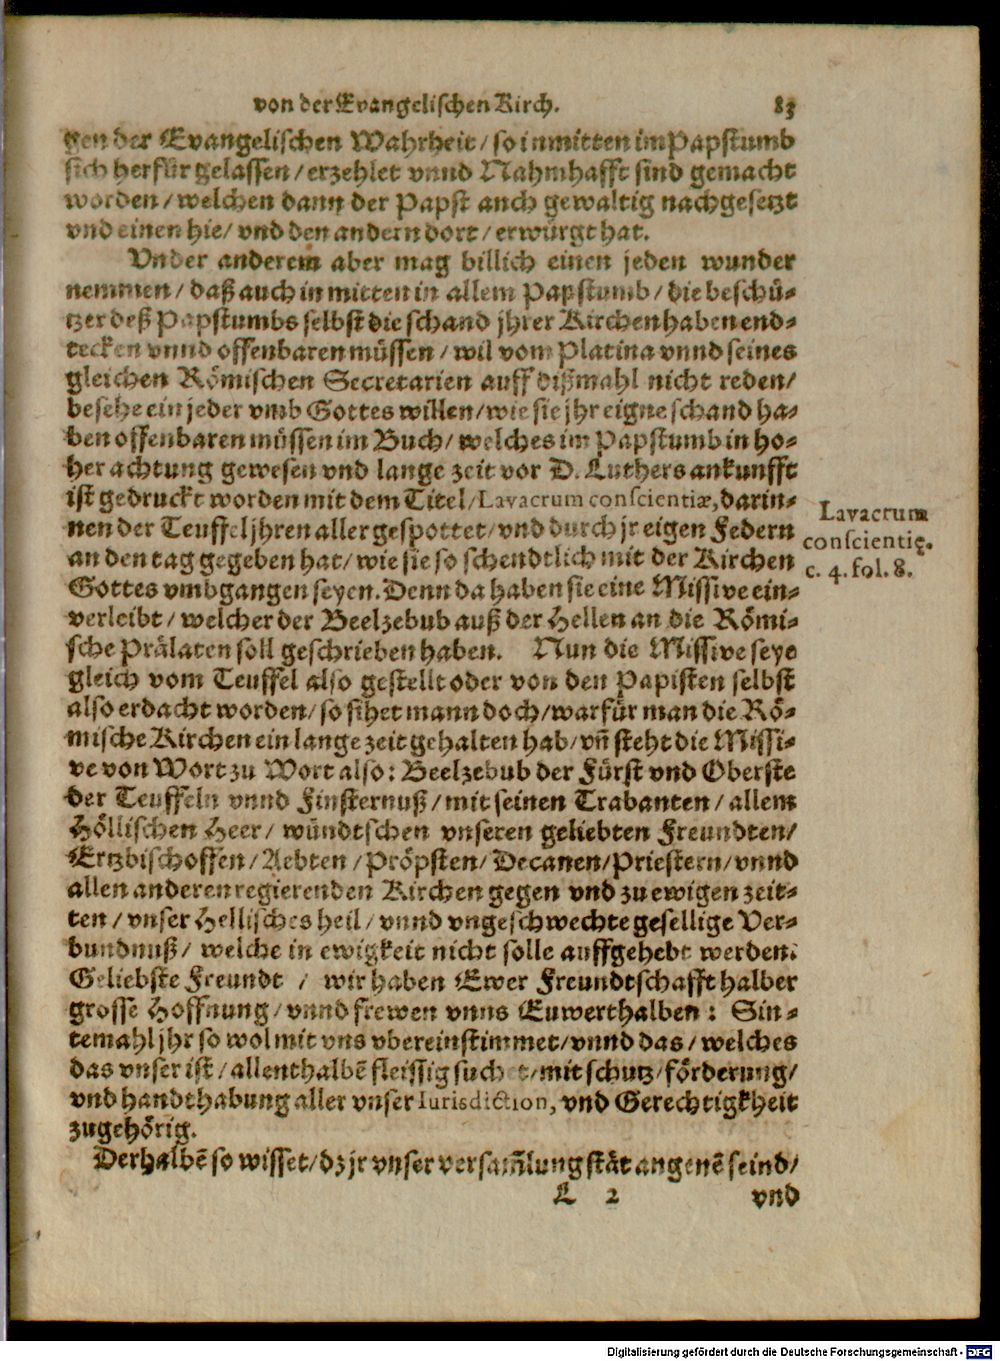 von der Evangelischen Kirch. 83
gen der Evangelischen Wahrheit / so inmitten im Papstumb
sich herfür gelassen / erzehlet vnnd Nahmhafft sind gemacht
worden / welchen dann der Papst auch gewaltig nachgesetzt
vnd einen hie / vnd den andern dort / erwürgt hat.
Vnder anderem aber mag billich einen jeden wunder
nemmen / daß auch in mitten in allem Papstumb / die beschü-
tzer deß Papstumbs selbst die schand jhrer Kirchen haben end-
tecken vnnd offenbaren müssen / wil vom Platina vnnd seines
gleichen Römischen Secretarien auff dißmahl nicht reden /
besehe ein jeder vmb Gottes willen / wie sie jhr eigne schand ha-
ben offenbaren müssen im Buch / welches im Papstumb in ho-
her achtung gewesen vnd lange zeit vor D. Luthers ankunfft
ist gedruckt worden mit dem Titel / Lavacrum conscientiæ, darin-
nen der Teuffel jhren aller gespottet / vnd durch jr eigen Federn
an den tag gegeben hat / wie sie so schendtlich mit der Kirchen
Gottes vmbgangen seyen. Denn da haben sie eine Missive ein-
verleibt / welcher der Beelzebub auß der Hellen an die Römi-
sche Prälaten soll geschrieben haben. Nun die Missive seye
gleich vom Teuffel also gestellt oder von den Papisten selbst
also erdacht worden / so sihet mann doch / warfür man die Rö-
mische Kirchen ein lange zeit gehalten hab / vñ steht die Missi-
ve von Wort zu Wort also : Beelzebub der Fürst vnd Oberste
der Teuffeln vnnd Finsternuß / mit seinen Trabanten / allem
Höllischen Heer / wündtschen vnseren geliebten Freundten /
Ertzbischoffen / Aebten / Pröpsten / Decanen / Priestern / vnnd
allen anderen regierenden Kirchen gegen vnd zu ewigen zeit-
ten / vnser Hellisches heil / vnnd vngeschwechte gesellige Ver-
bundnuß / welche in ewigkeit nicht solle auffgehebt werden.
Geliebste Freundt / wir haben Ewer Freundtschafft halber
grosse Hoffnung / vnnd frewen vnns Euwerthalben : Sin-
temahl jhr so wol mit vns vbereinstimmet / vnnd das / welches
das vnser ist / allenthalbẽ fleissig suchet / mit schutz / förderung /
vnd handthabung aller vnser Iurisdiction, vnd Gerechtigkheit
zugehörig.
Derhalbẽ so wisset / dz jr vnser versam̃lung stät angenẽ seind /
L 2 vnd
Lavacrum
conscientię.
c. 4. fol. 8.
Digitalisierung gefördert durch die Deutsche Forschungsgemeinschaft - DFG